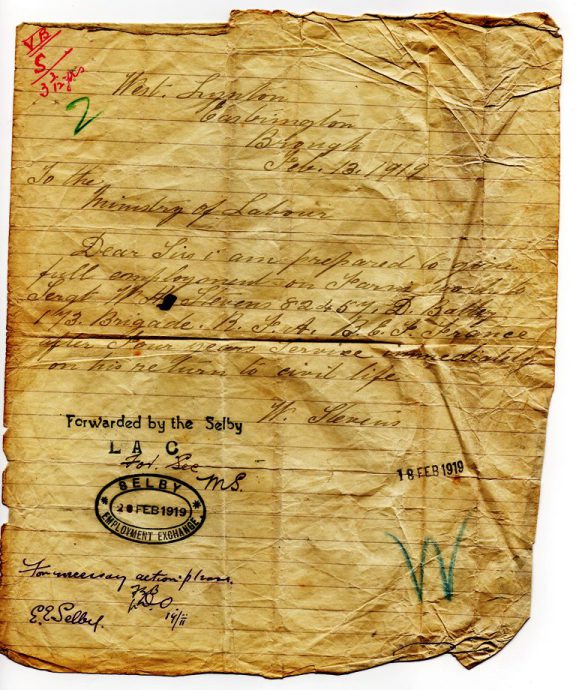 VB
S
3 3/12 yrs
2
West. Lynton
Eastrington
Brough
Feb. 13. 1919
To the
Ministry of Labour
Dear Sirs i am prepared to give
full employment on Farm work to
Sergt W. H. Stevens 82457. D. Batty
173. Brigade. R. F. A. B. E. F. France
after Four years Service immediately
on his return to civil life
W. Stevens
Forwarded by the Selby
L A C
Sec
MS.
18 FEB 1919
SELBY
FEB 1919
EMPLOYMENT EXCHANGE
For necessary action please.
E.E Selby.
W